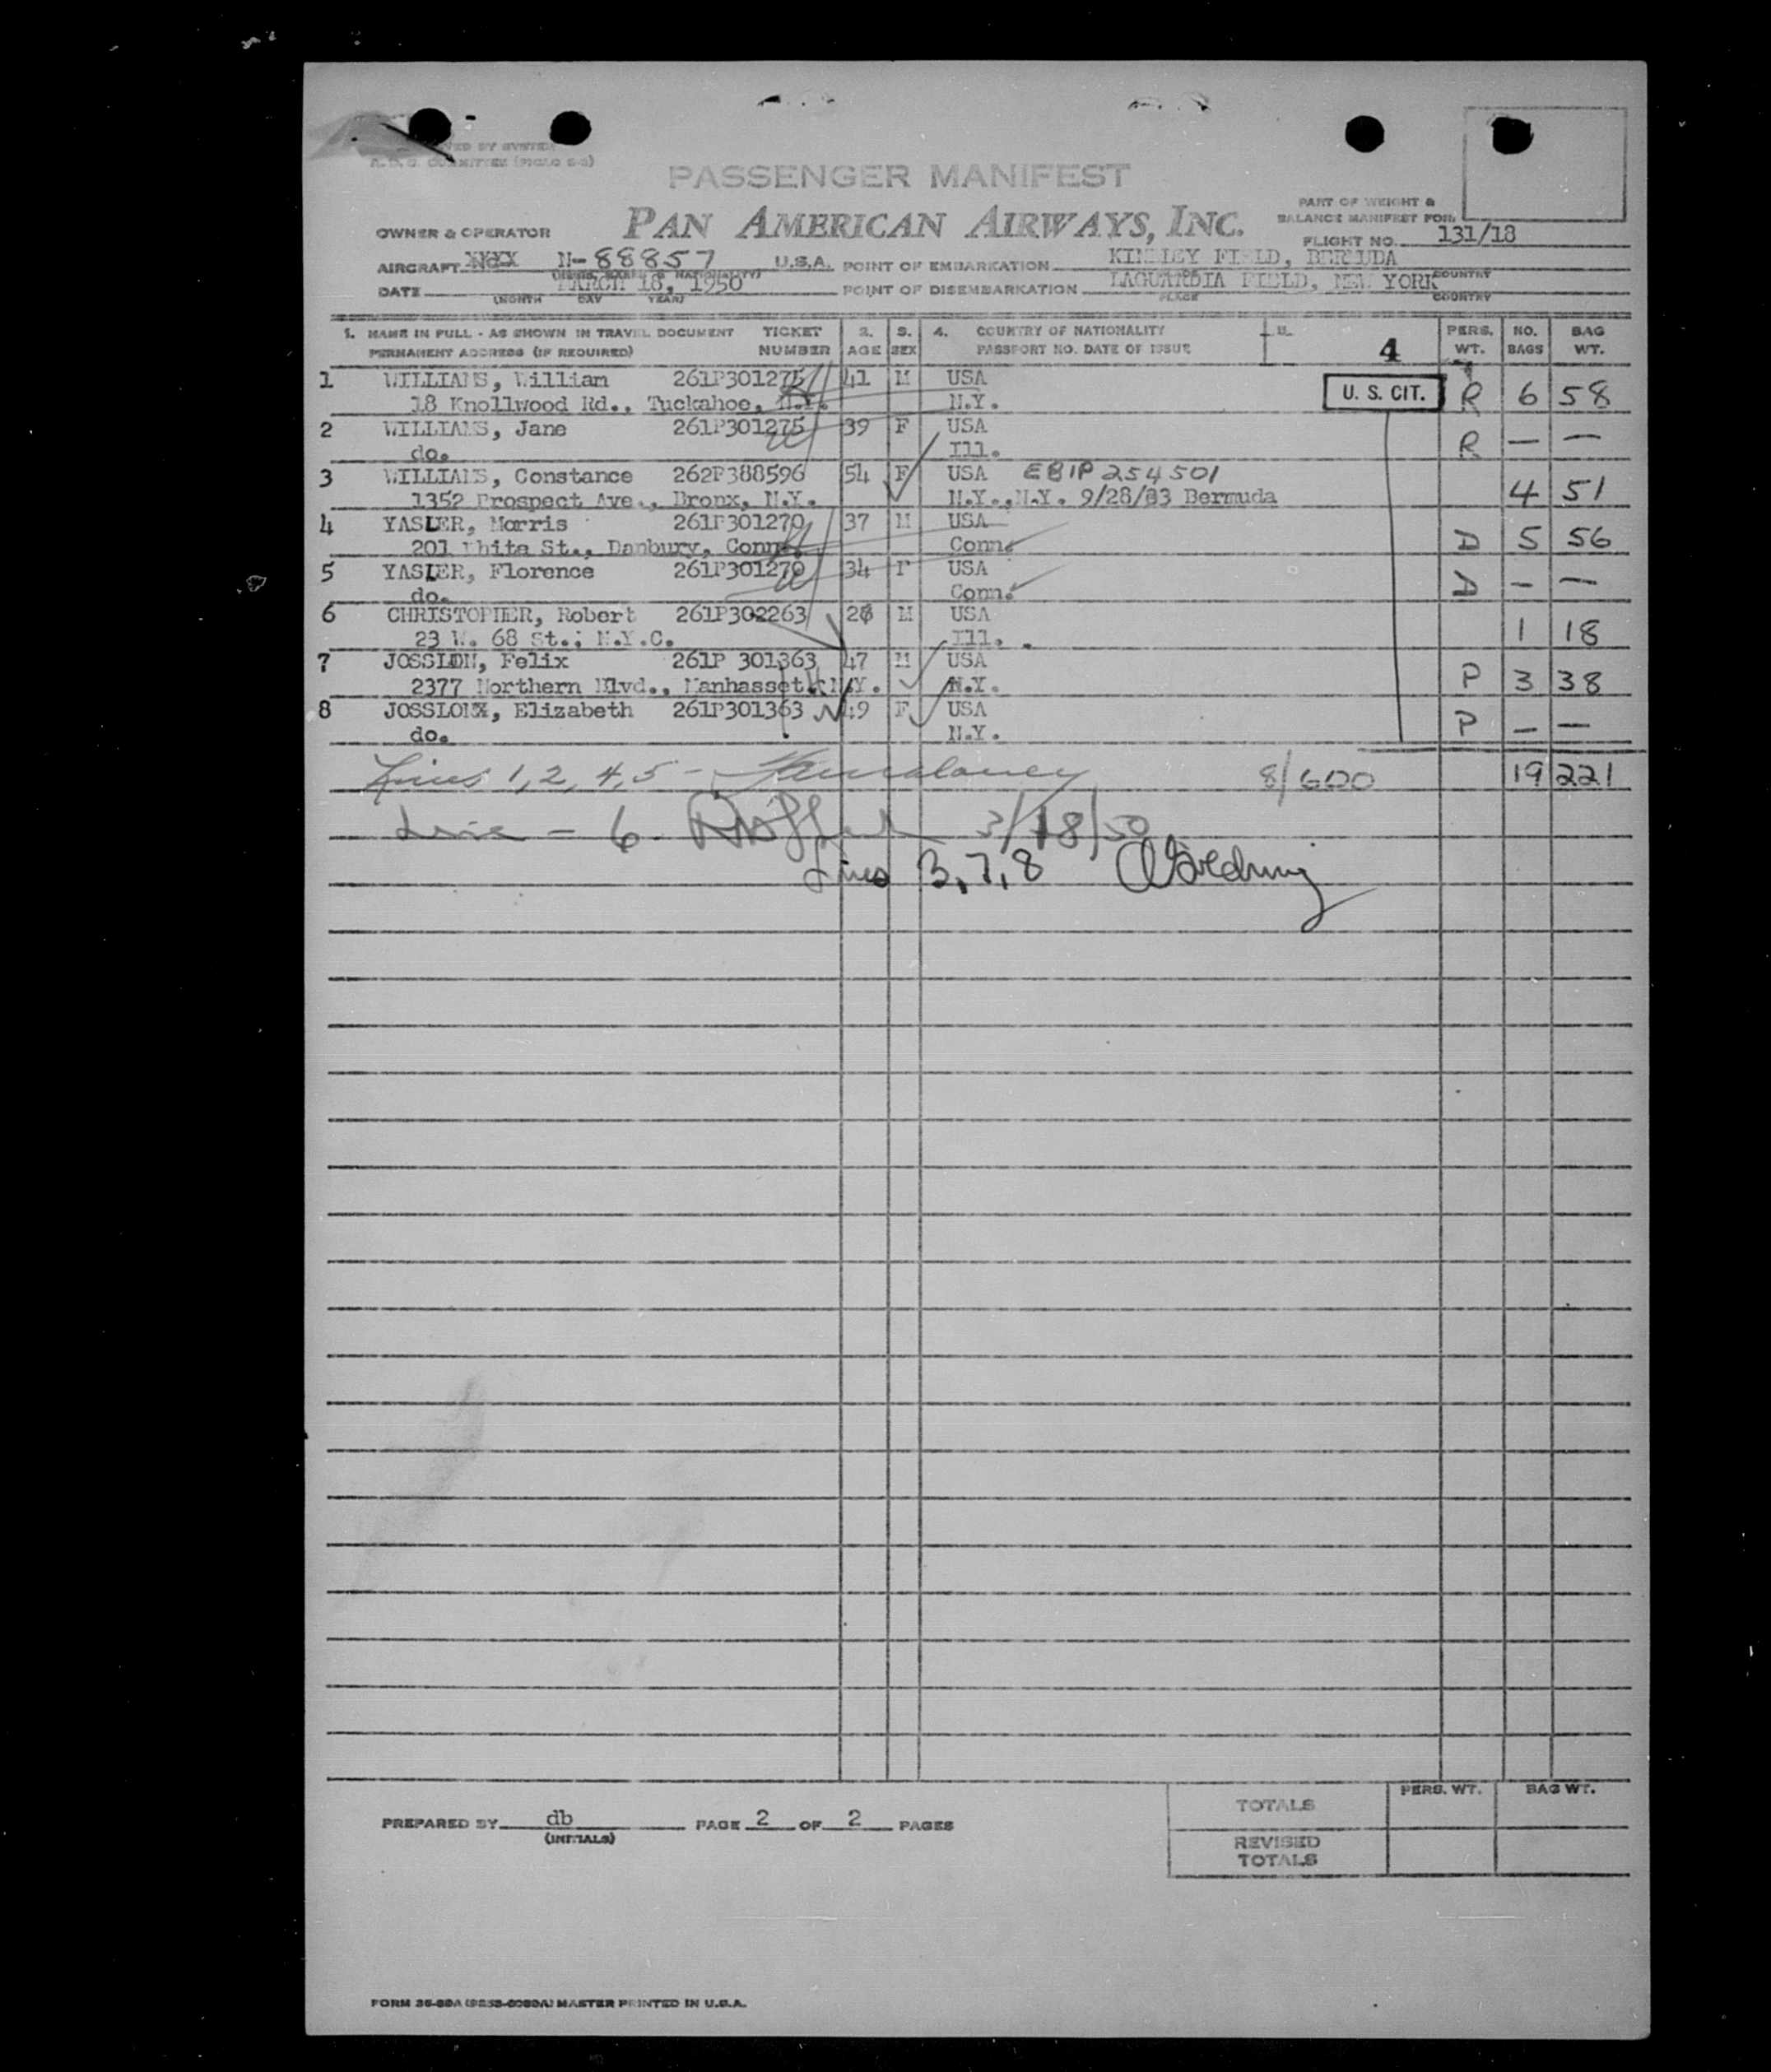 PASSENGER MANIFEST
OWNER & OPERATOR PAN AMERICAN AIRWAYS, INC.
PART OF WEIGHT &
BALANCE MANIFEST FOR
FLIGHT NO. 131/18
AIRCRAFT N-88857 U.S.A. POINT OF EMBARKATION KINDLEY FIELD, BERMUDA
DATE MARCH 18, 1950 POINT OF DISEMBARKATION LAGUARDIA FIELD, NEW YORK
(MONTH DAY YEAR) PLACE COUNTRY
1. NAME IN FULL - AS SHOWN IN TRAVEL DOCUMENT TICKET 2. 3. 4. COUNTRY OF NATIONALITY PERS. NO. BAG
PERMANENT ADDRESS (IF REQUIRED) NUMBER AGE SEX PASSPORT NO. DATE OF ISSUE 4 WT. BAGS WT.
1 WILLIAMS, William 261P301275 41 M USA U. S. CIT. R 6 58
18 Knollwood Rd., Tuckahoe, N.Y. N.Y.
2 WILLIAMS, Jane 261P301275 39 F USA R — —
do. Ill.
3 WILLIAMS, Constance 262P388596 54 F USA EBIP 254501
1352 Prospect Ave., Bronx, N.Y. N.Y.,N.Y. 9/28/83 Bermuda 4 51
4 YASLER, Morris 261P301270 37 M USA
201 White St., Danbury, Conn. Conn. D 5 56
5 YASLER, Florence 261P301270 34 F USA D - —
do. Conn.
6 CHRISTOPHER, Robert 261P302263 M USA
23 W. 68 St.; N.Y.C. Ill. 1 18
7 JOSSLON, Felix 261P 301363 47 M USA
2377 Northern Blvd., Manhasset N.Y. N.Y. P 3 38
8 JOSSLONX, Elizabeth 261P301363 49 F USA P — —
do. N.Y.
Lines 1, 2, 4, 5 - 8/600 19 221
Line - 6 3/18/50
Lines 3, 7, 8
TOTALS PERS. WT. BAG WT.
PREPARED BY db PAGE 2 OF 2 PAGES
(INITIALS)
REVISED
TOTALS
MASTER PRINTED IN U.S.A.